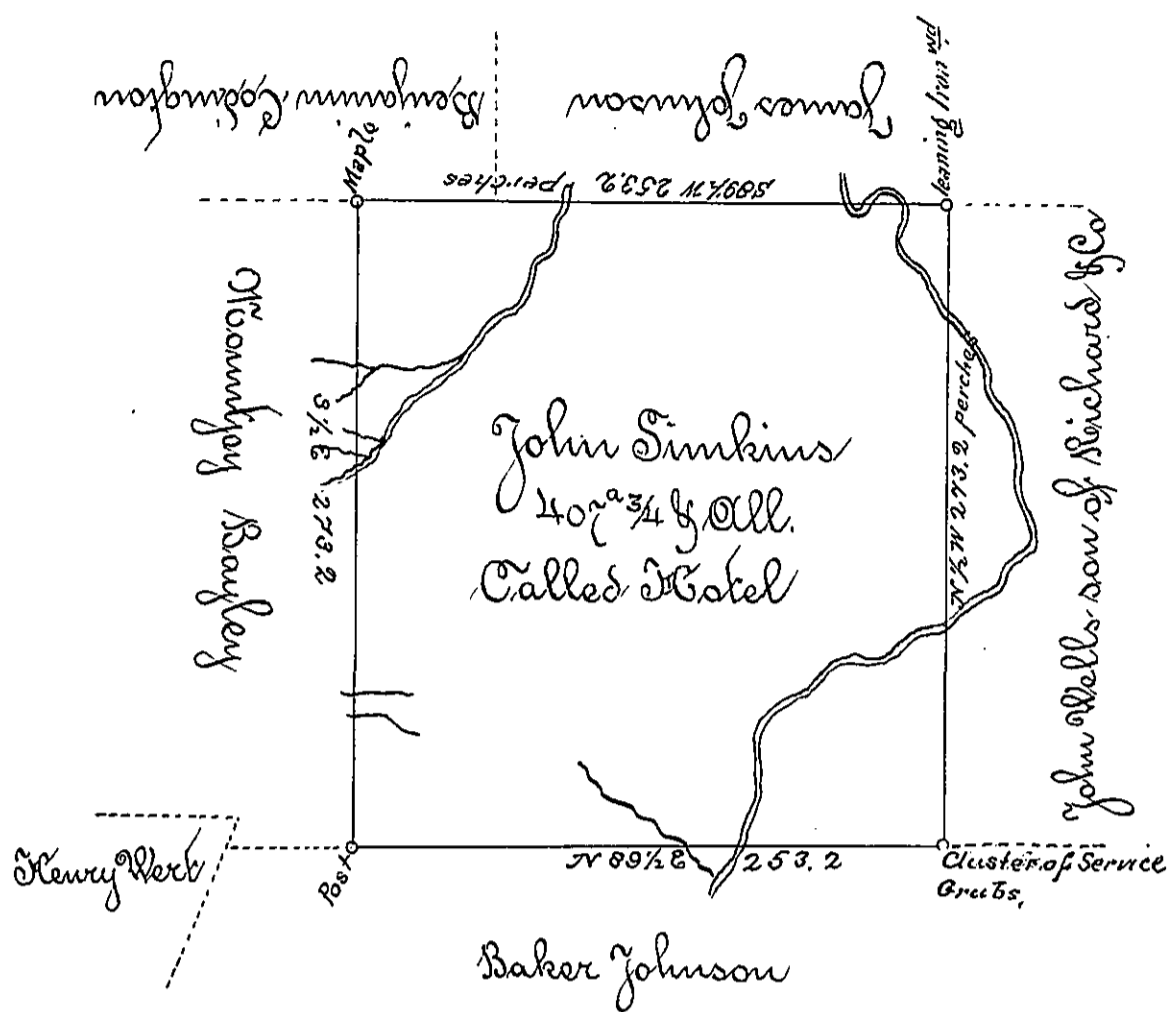 Benjamin Codington
James Johnson
leaning Iron Wd
Maple
S 89½ W 253.2 perches
Mountjoy Bayley
S ½ E 273.2
John Simkins
407ᵃ ¾ & All.
Called Hotel
N ½ W 273.2 perches
John Wells son of Richard & Co
Henry Werk
Post
N 89½ E 253.2
Cluster of Service
Grubs,
Baker Johnson